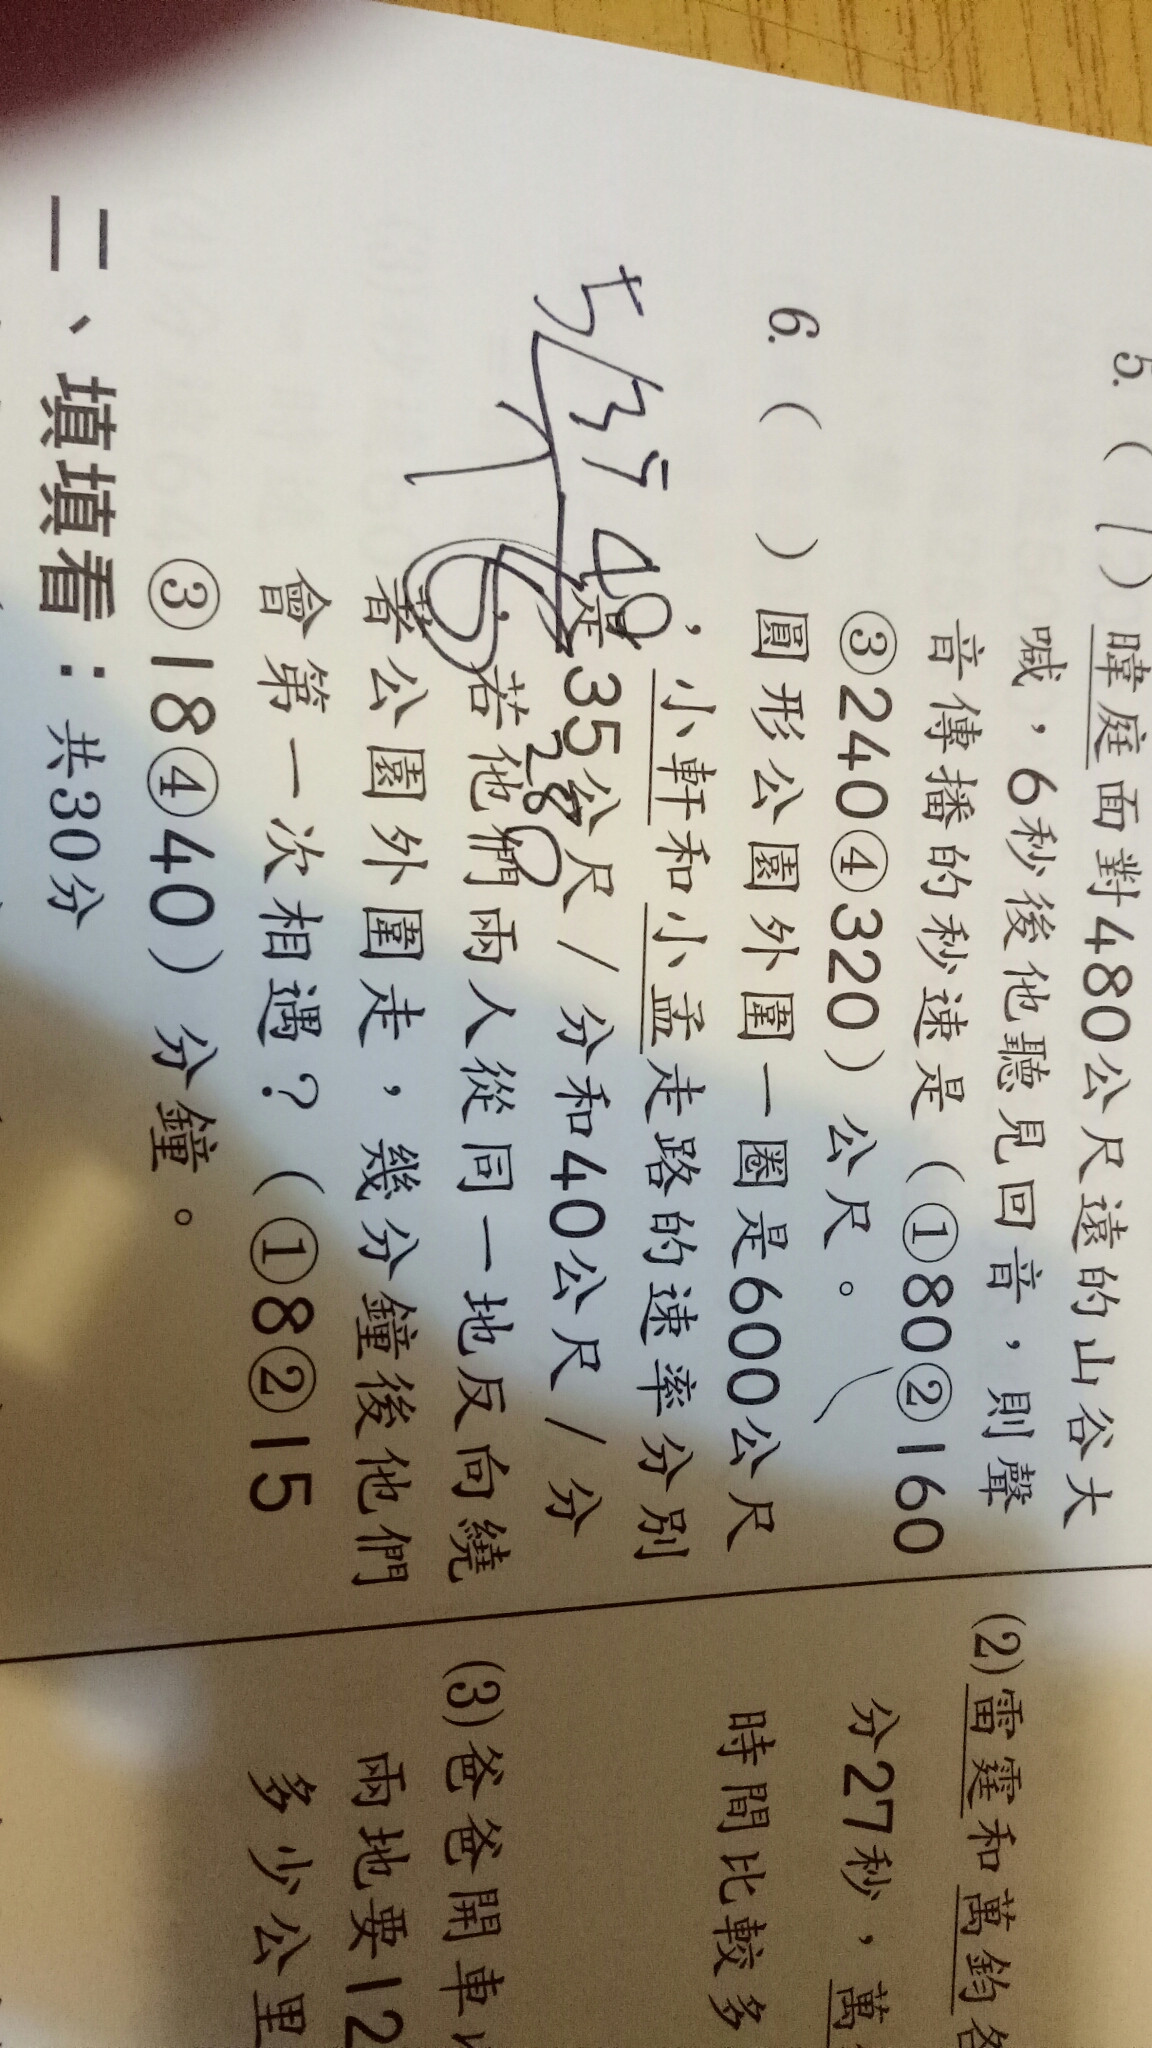 5.（1）暐庭面對480公尺遠的山谷大
喊，6秒後他聽見回音，則聲
音傳播的秒速是（①80②160
③240④320）公尺。
6.（　）圓形公園外圍一圈是600公尺
，小軒和小孟走路的速率分別
是35公尺／分和40公尺／分
，若他們兩人從同一地反向繞
著公園外圍走，幾分鐘後他們
會第一次相遇？（①8②15
③18④40）分鐘。
280
二、填填看：共30分
(2)雷霆和萬鈞各
分27秒，萬
時間比較多
(3)爸爸開車
兩地要12
多少公里